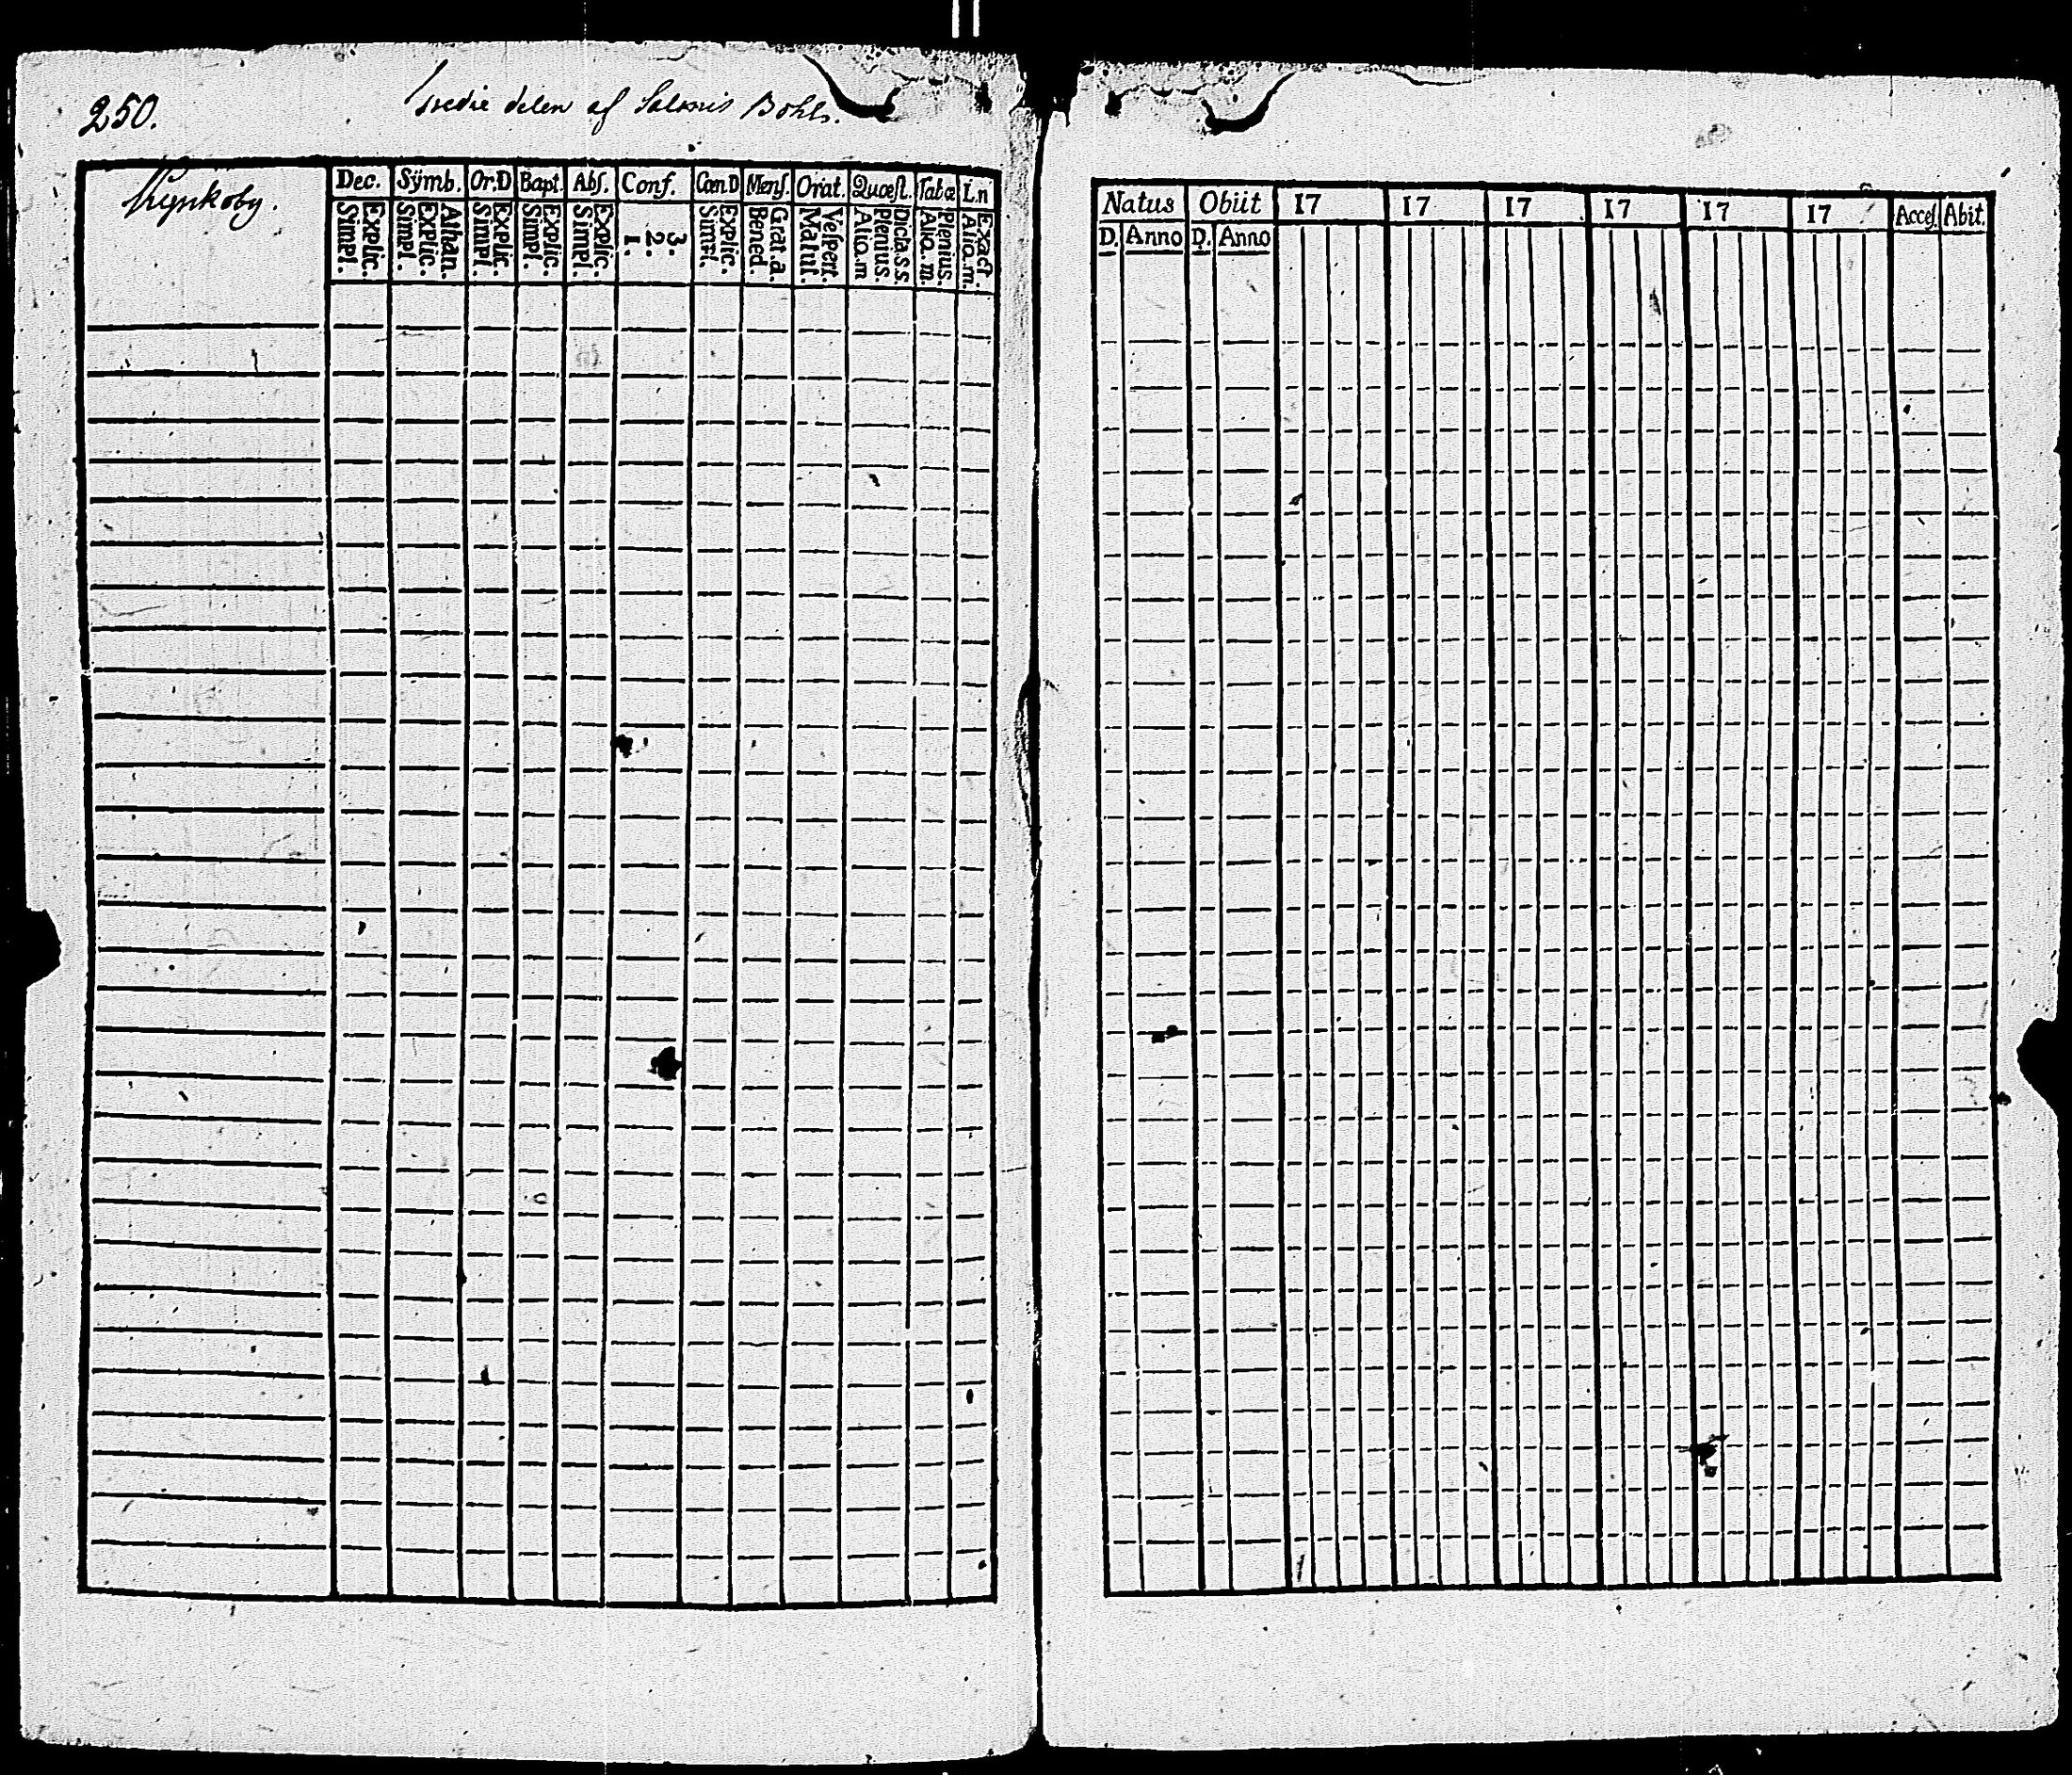 250. Tredie delen af Salonis Bohls.
Kynkoby. Dec. Sÿmb. Or.D Bapt. Abſ. Conf. Cœn.D Menſ. Orat. Quœſt. Tabœ Ln
Simpl. Explic. Simpl. Explic. Athan. Simpl. Explic. Simpl. Explic. Simpl. Explic. 1. 2. 3. Simpl. Explic. Bened. Grat.a. Matut. Veſpert. Alia.m Plenius. Dicta.s.s. Alia.m. Plenius. Alia.m. Exact.
Natus Obiit 17 17 17 17 17 17 Acceſ. Abit.
D. Anno D. Anno